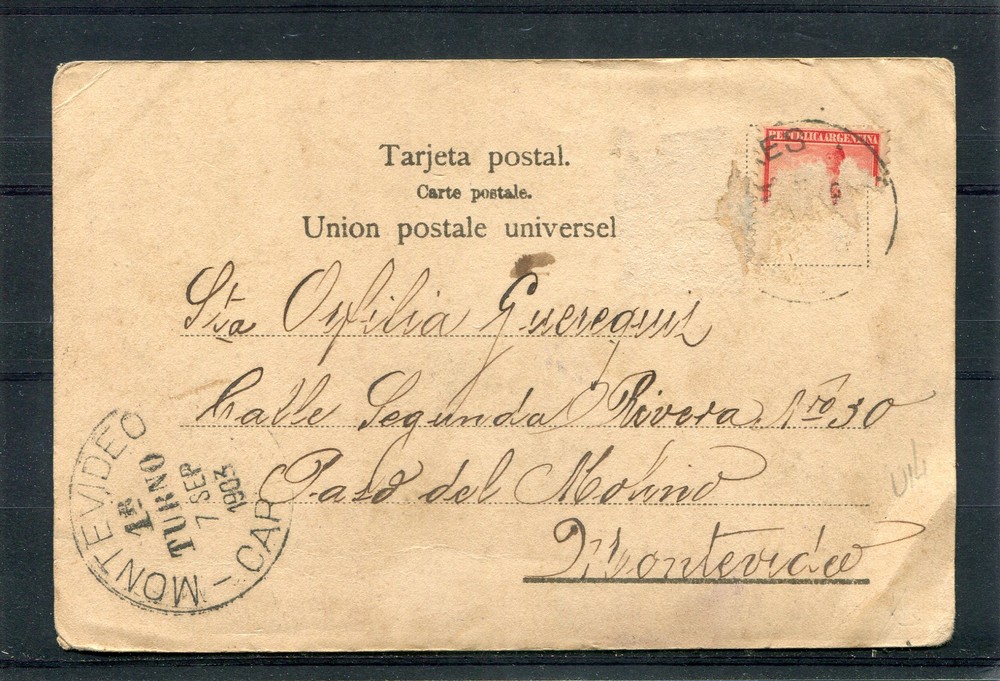 REPUBLICA ARGENTINA
RES
Tarjeta postal.
Carte postale.
Union postale universel
Sta Orfilia Guerequiz
Calle Segunda Rivera Nro 30
Paso del Molino
Montevideo
MONTEVIDEO - CAR
1R
TURNO
7 SEP
1903